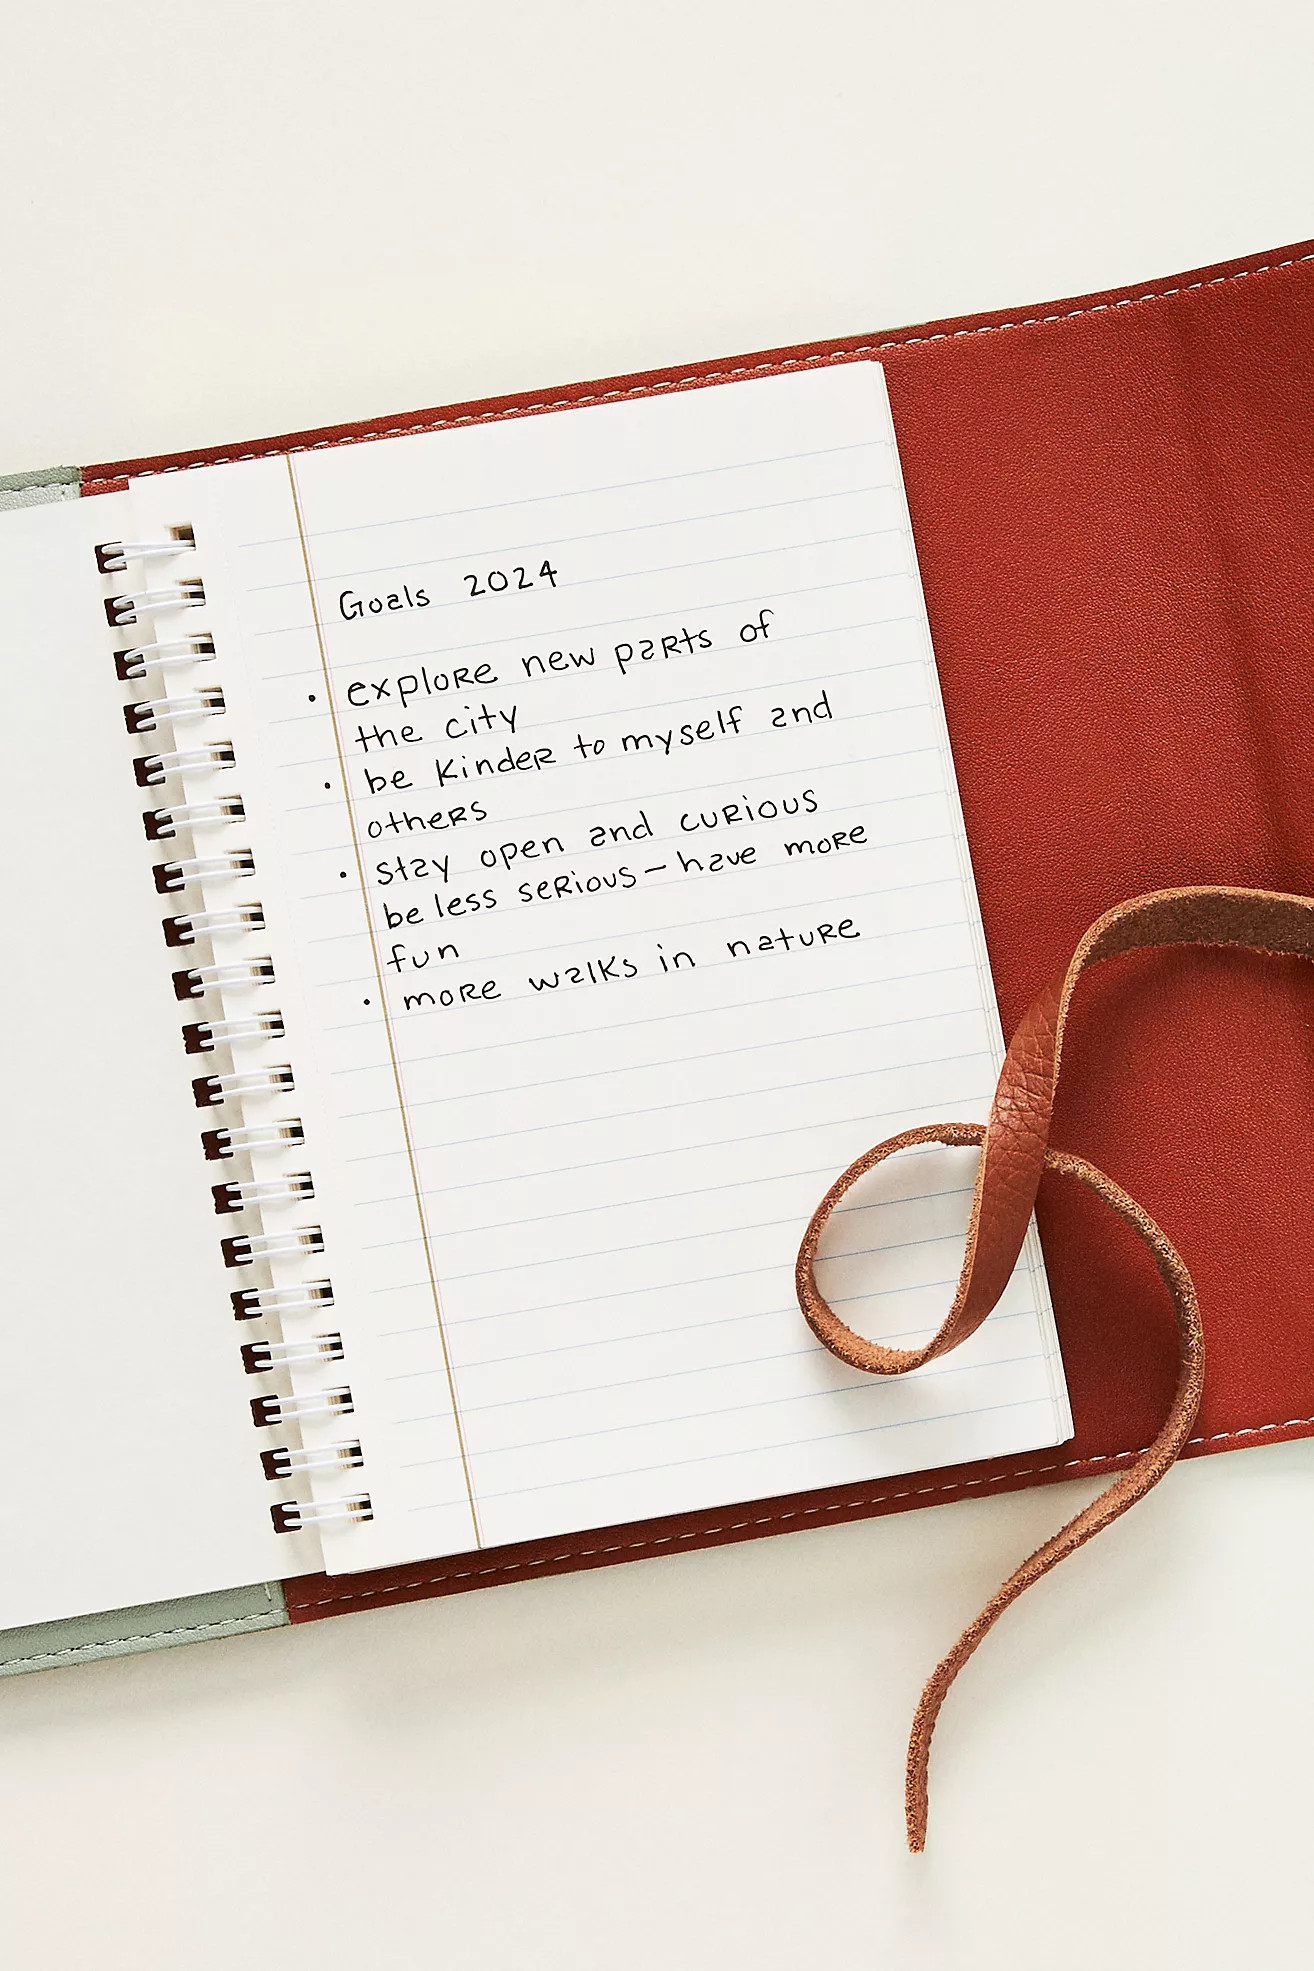 Goals 2024
• explore new parts of
the city
• be kinder to myself and
others
• stay open and curious
be less serious – have more
fun
• more walks in nature